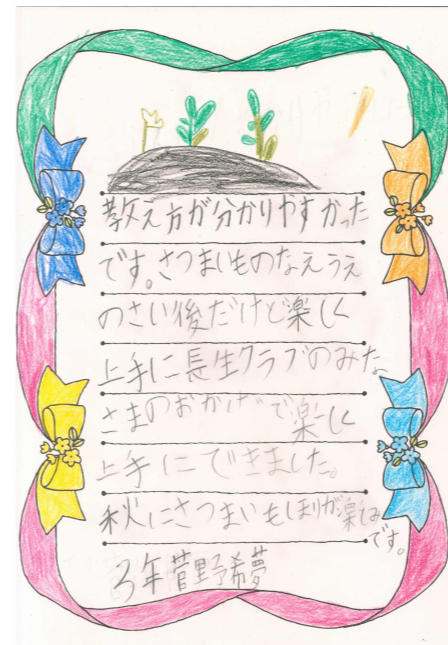 教え方が分かりやすかった
です。さつまいものなえうえ
のさい後だけど楽しく
上手に長生クラブのみな
さまのおかげで楽しく
上手にできました。
秋にさつまいもほりが楽しみ
です。
3年菅野希夢